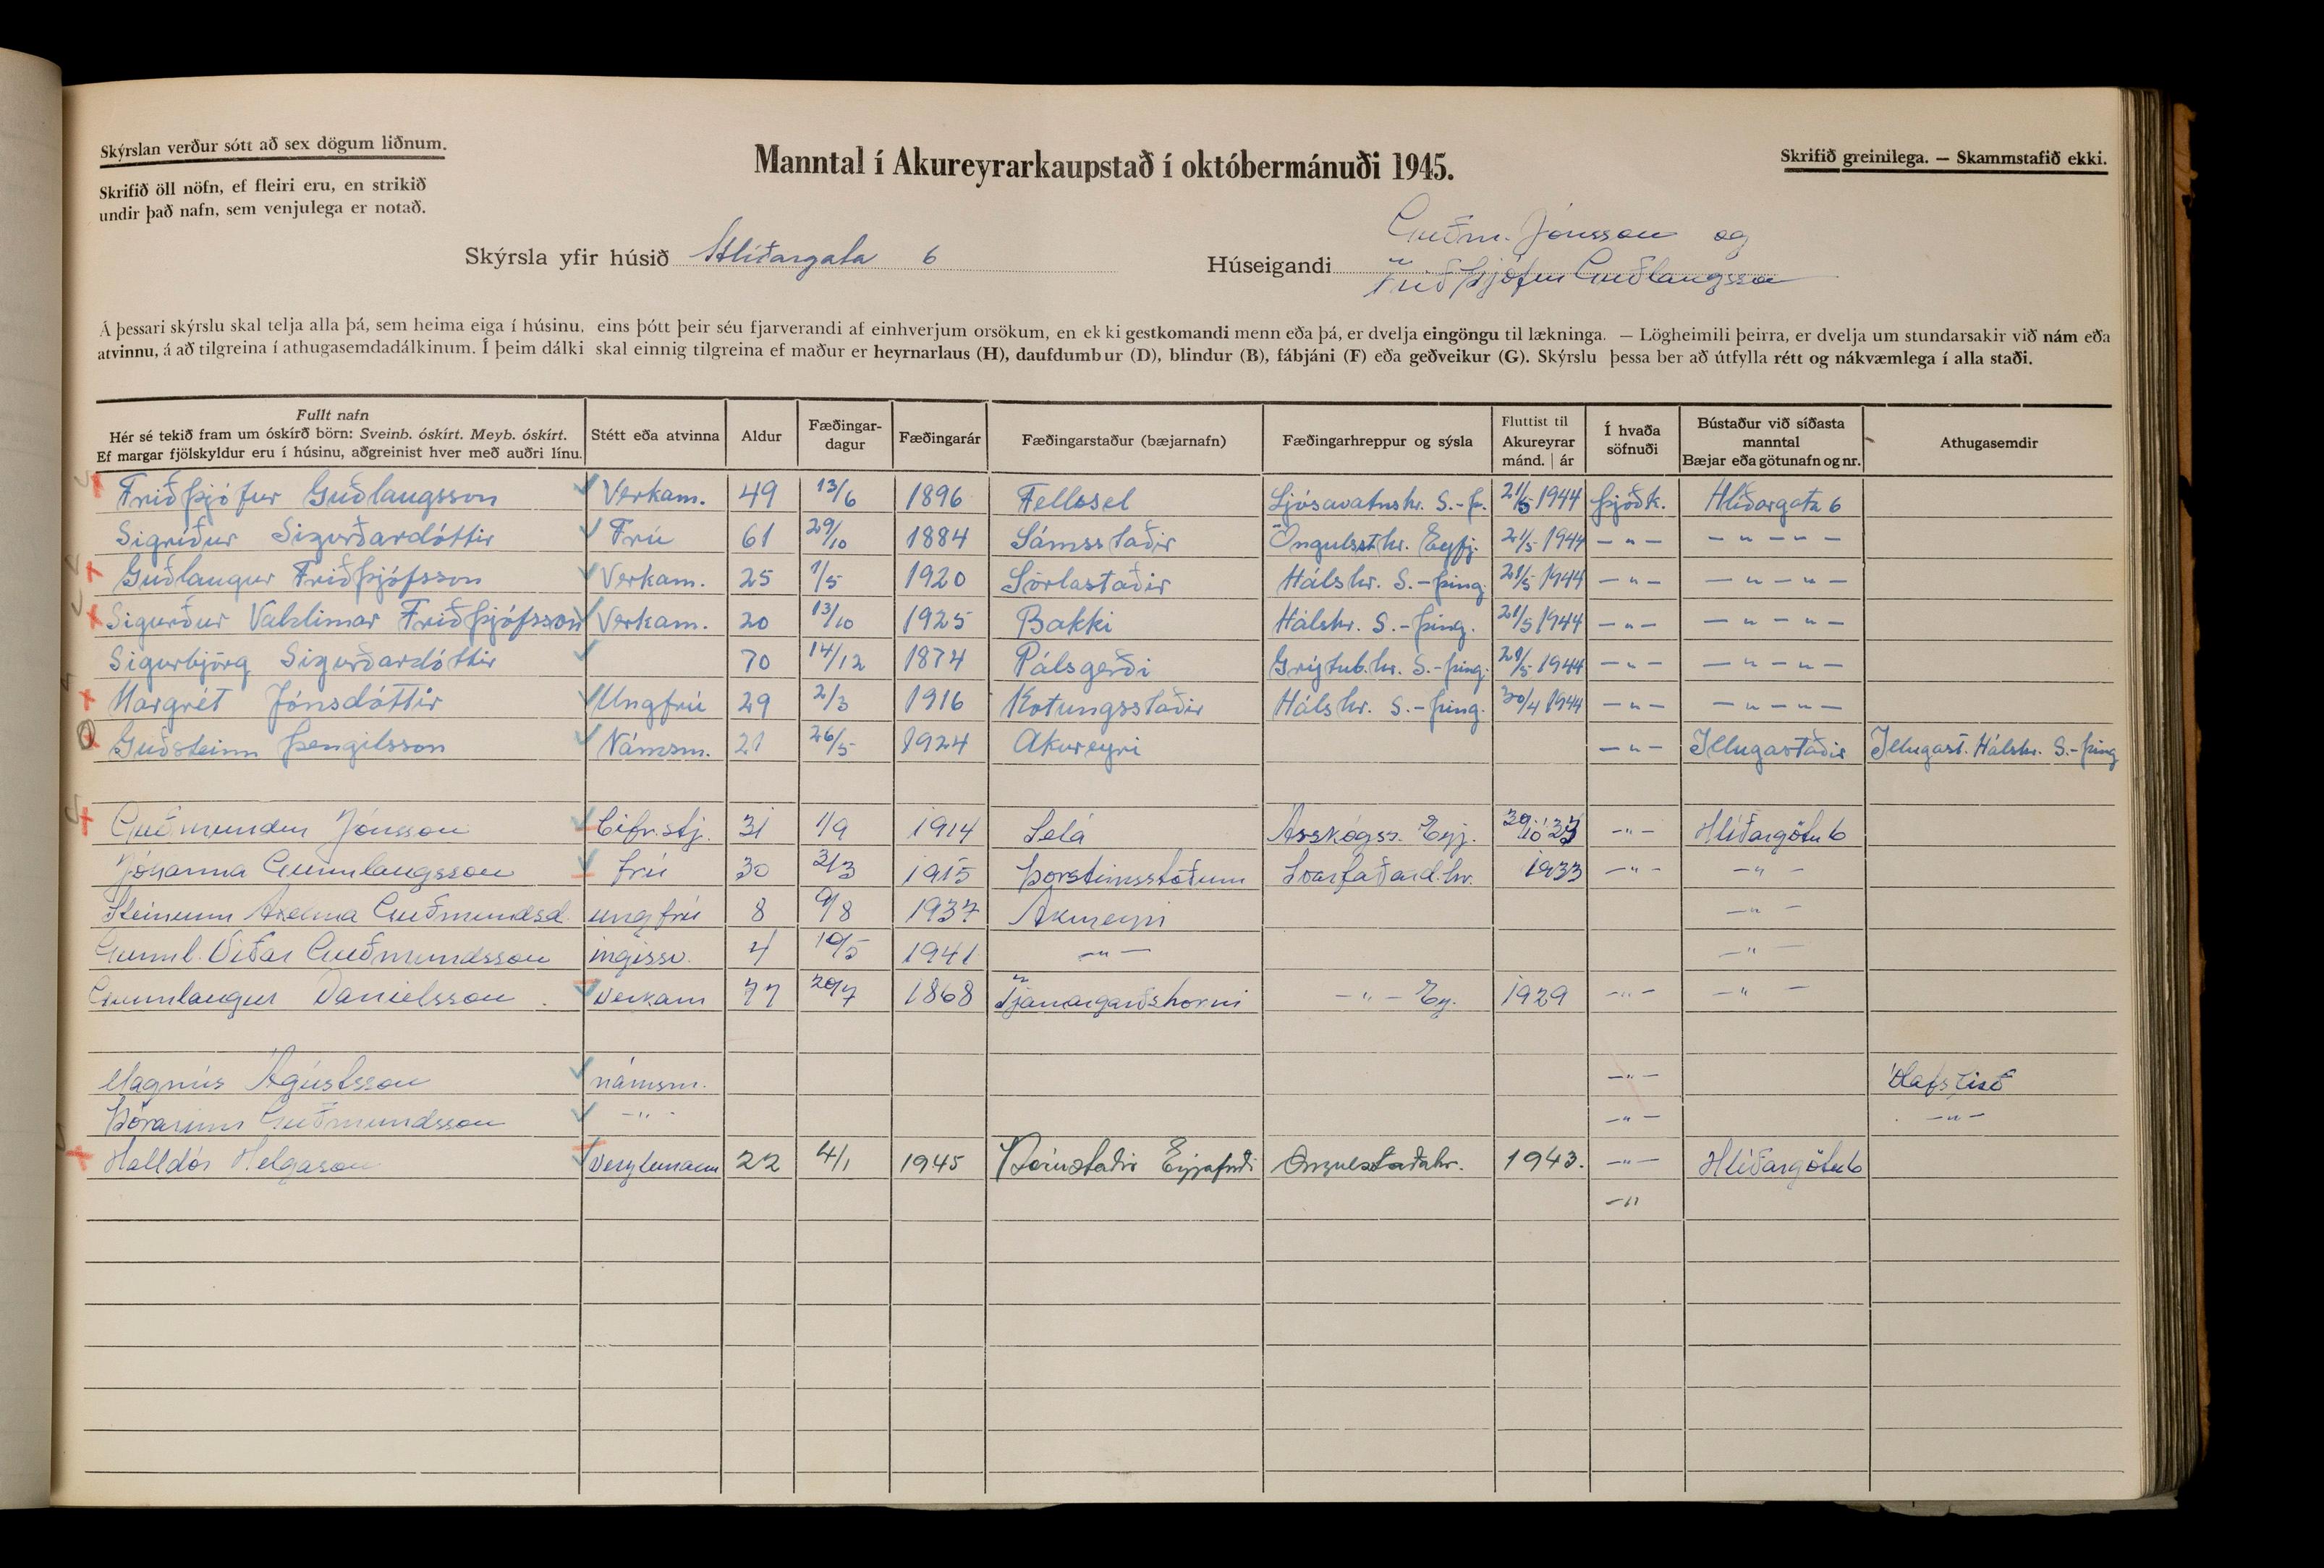 Skýrslan verður sótt að sex dögum liðnum.
Skrifið öll nöfn, ef fleiri eru, en strikið
undir það nafn, sem venjulega er notað.
Manntal í Akureyrarkaupstað í októbermánuði 1945.
Skrifið greinilega. — Skammstafið ekki.
Skýrsla yfir húsið Hlíðargata 6
Húseigandi Guðm. Jónsson og
Friðþjófur Guðlaugsson
Á þessari skýrslu skal telja alla þá, sem heima eiga í húsinu, eins þótt þeir séu fjarverandi af einhverjum orsökum, en ekki gestkomandi menn eða þá, er dvelja eingöngu til lækninga. — Lögheimili þeirra, er dvelja um stundarsakir við nám eða
atvinnu, á að tilgreina í athugasemdadálkinum. Í þeim dálki skal einnig tilgreina ef maður er heyrnarlaus (H), daufdumbur (D), blindur (B), fábjáni (F) eða geðveikur (G). Skýrslu þessa ber að útfylla rétt og nákvæmlega í alla staði.
Fullt nafn
Hér sé tekið fram um óskírð börn: Sveinb. óskírt. Meyb. óskírt.
Ef margar fjölskyldur eru í húsinu, aðgreinist hver með auðri línu.
Stétt eða atvinna
Aldur
Fæðingar-
dagur
Fæðingarár
Fæðingarstaður (bæjarnafn)
Fæðingarhreppur og sýsla
Fluttist til
Akureyrar
mánd. | ár
Í hvaða
söfnuði
Bústaður við síðasta
manntal
Bæjar eða götunafn og nr.
Athugasemdir
Friðþjófur Guðlaugsson Verkam. 49 13/6 1896 Fellssel Ljósavatnshr. S.-Þ. 21/5 1944 Þjóðk. Hlíðargata 6
Sigríður Sigurðardóttir Frú 61 29/10 1884 Sámsstaðir Öngulssthr. Eyfj. 21/5 1944 — " — — " — " —
Guðlaugur Friðþjófsson Verkam. 25 1/5 1920 Sörlastaðir Hálshr. S.-Þing. 21/5 1944 — " — — " — " —
Sigurður Valdimar Friðþjófsson Verkam. 20 13/10 1925 Bakki Hálshr. S.-Þing. 21/5 1944 — " — — " — " —
Sigurbjörg Sigurðardóttir 70 14/12 1874 Pálsgerði Grýtub.hr. S.-Þing. 21/5 1944 — " — — " — " —
Margrét Jónsdóttir Ungfrú 29 2/3 1916 Kotungsstaðir Hálshr. S.-Þing. 30/4 1944 — " — — " — " —
Guðsteinn Þengilsson Námsm. 21 26/5 1924 Akureyri — " — Illugastaðir Illugast. Hálshr. S.-Þing
Guðmundur Jónsson Bifr.stj. 31 1/9 1914 Selá Árskógss. Eyj. — " — Hlíðargötu 6
Jóhanna Gunnlaugsson frú 30 3/3 1915 Þorsteinsstöðum Svarfaðard.hr. 1933 — " — — " —
Steinunn Guðmundsd. ungfrú 8 9/8 1937 Akureyri — " —
Gunnl. Viðar Guðmundsson ingissv. 4 10/5 1941 — " — — " —
Gunnlaugur Daníelsson. Verkam 77 20/7 1868 Tjarnargarðshorni — " — Ey. 1929 — " — — " —
Magnús Ágústsson námsm. — " —
Þórarinn Guðmundsson — " — — " — — " —
Halldór Helgason Verzlemann 22 4/1 1945 Öngulsstaðahr. 1943. — " — Hlíðargötu 6
— "